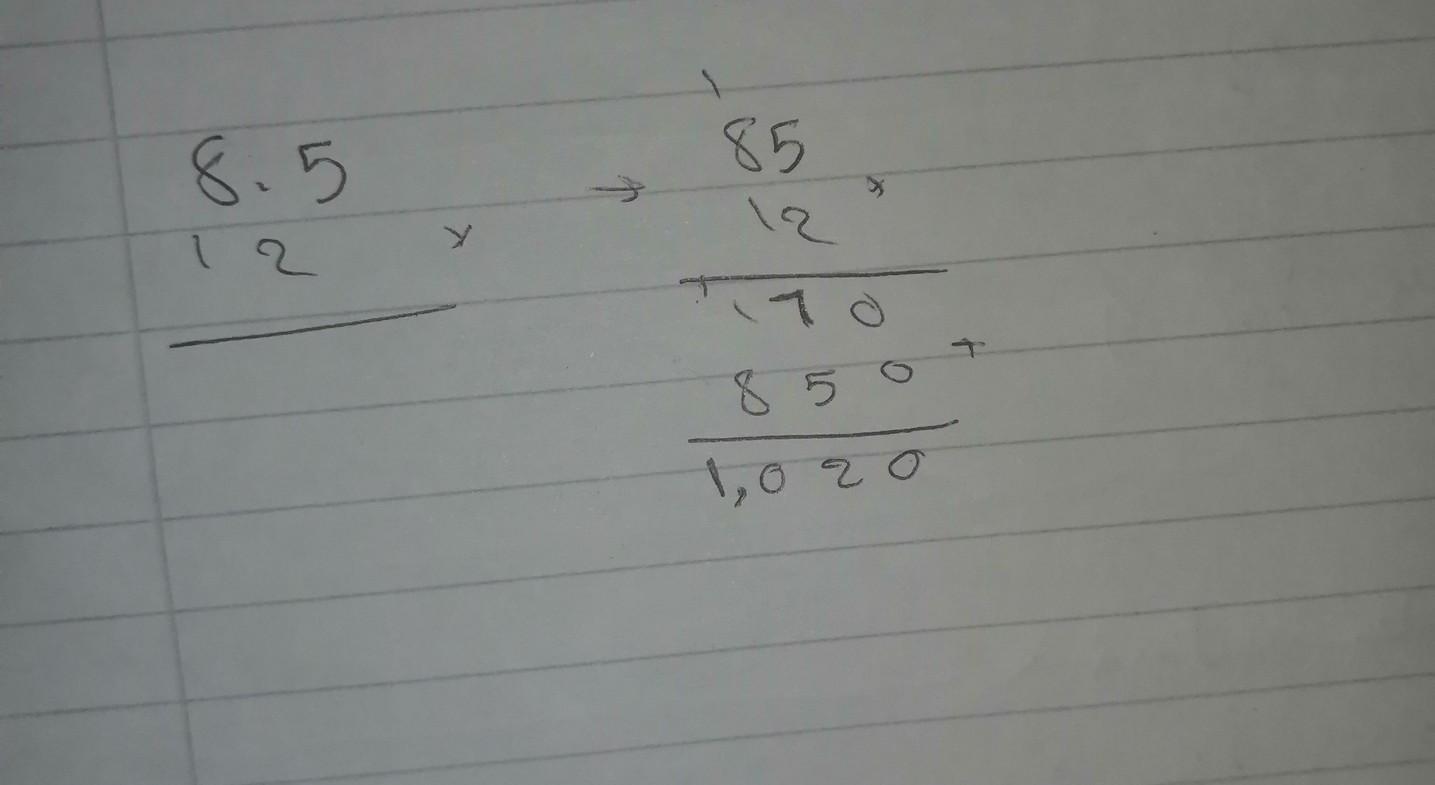 8.5
12 x
→
1
85
12 x
1
170
850 +
1,020